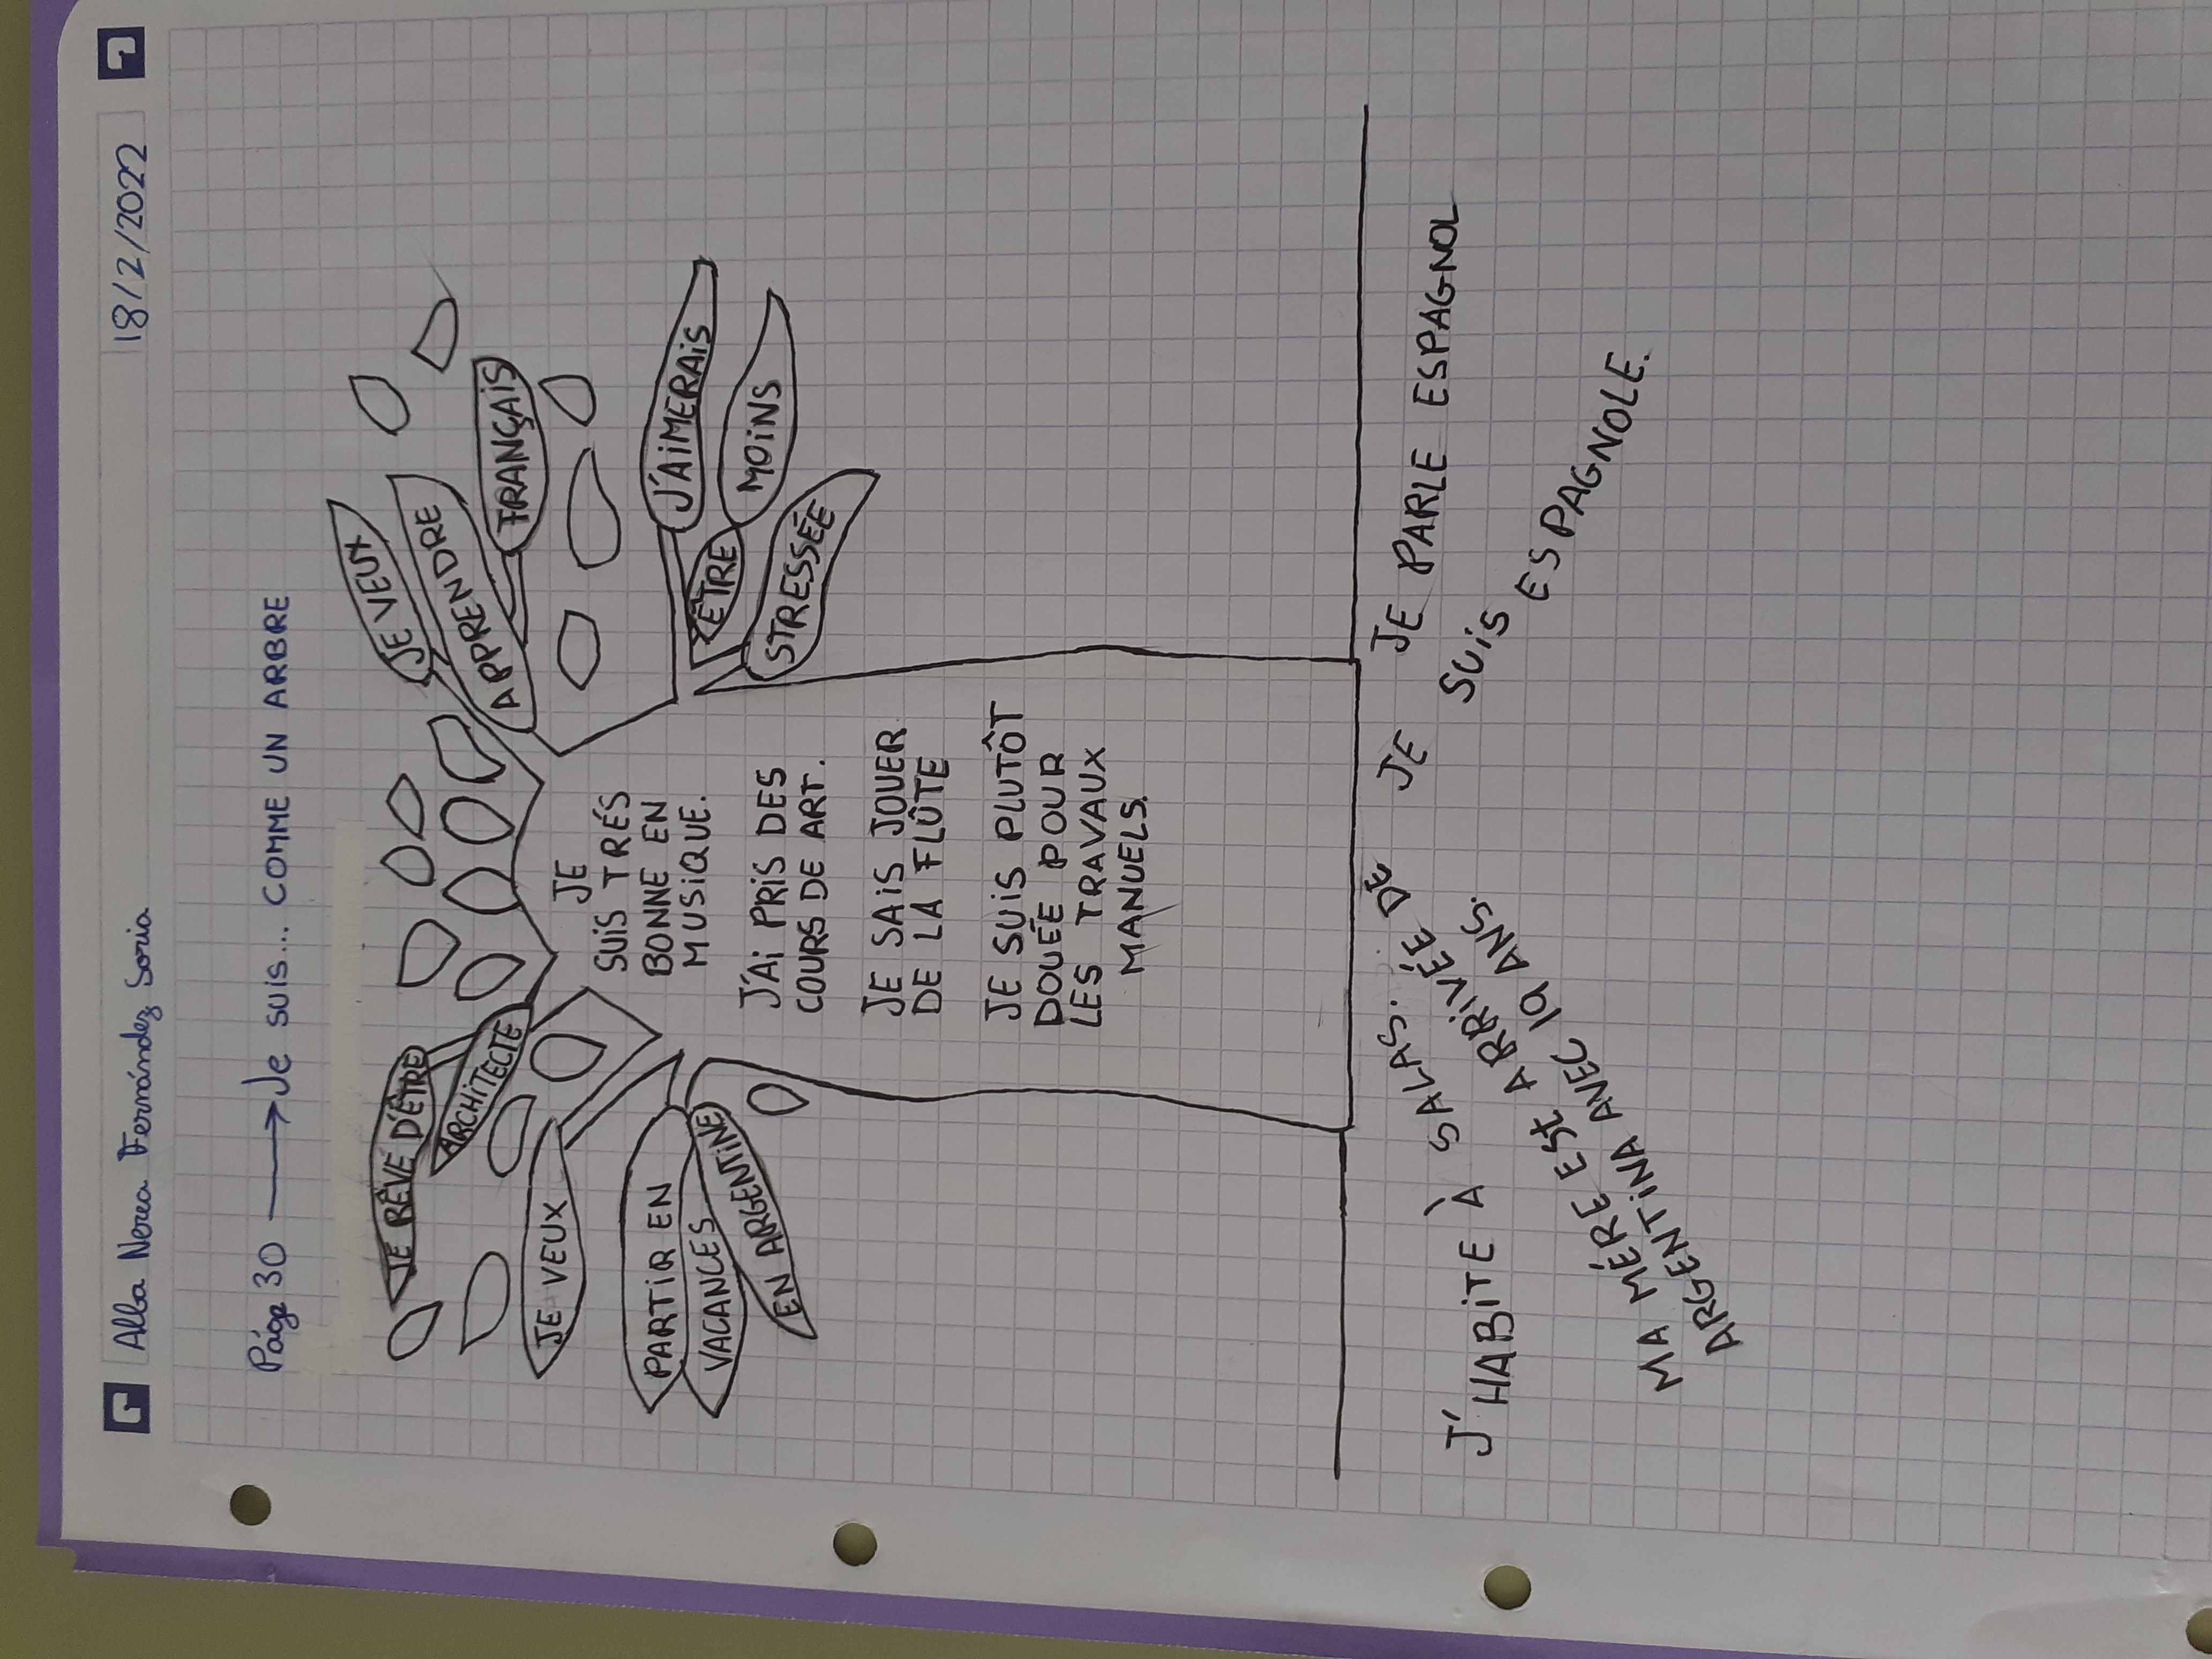 Alba Nerea Fernández Soria
18/2/2022
Pág 30 → Je suis... COMME UN ARBRE
JE RÊVE D'ÊTRE
ARCHITECTE
JE VEUX
PARTIR EN
VACANCES
EN ARGENTINE
JE VEUX
APPRENDRE
FRANÇAIS
J'AIMERAIS
ÊTRE
MOINS
STRESSÉE
JE
SUIS TRÉS
BONNE EN
MUSIQUE.
J'AI PRIS DES
COURS DE ART.
JE SAIS JOUER
DE LA FLÛTE
JE SUIS PLUTÔT
DOUÉE POUR
LES TRAVAUX
MANUELS.
J'HABITE À SALAS.
MA MÉRE ESt ARRIVÉE DE
ARGENTINA AVEC 19 ANS.
JE SUIS ESPAGNOLE.
JE PARLE ESPAGNOL